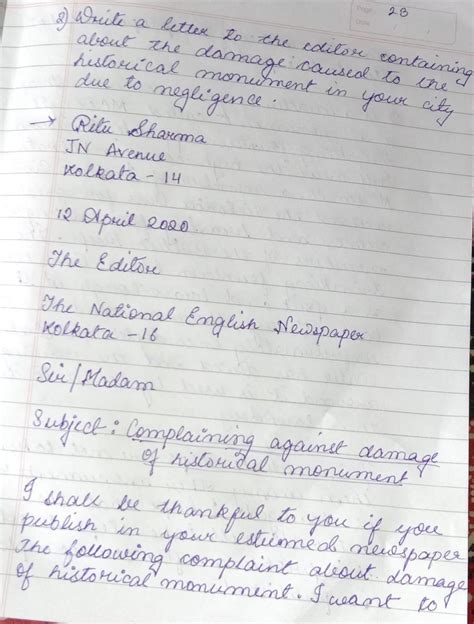 Page: 28
Date: / /
2) Write a letter to the editor containing
about the damage caused to the
historical monument in your city
due to negligence.
→ Ritu Sharma
JN Avenue
Kolkata - 14
12 April 2020
The Editor
The National English Newspaper
Kolkata - 16
Sir/Madam
Subject: Complaining against damage
of historical monument
I shall be thankful to you if you
publish in your estumed newspaper
the following complaint about damage
of historical monument. I want to